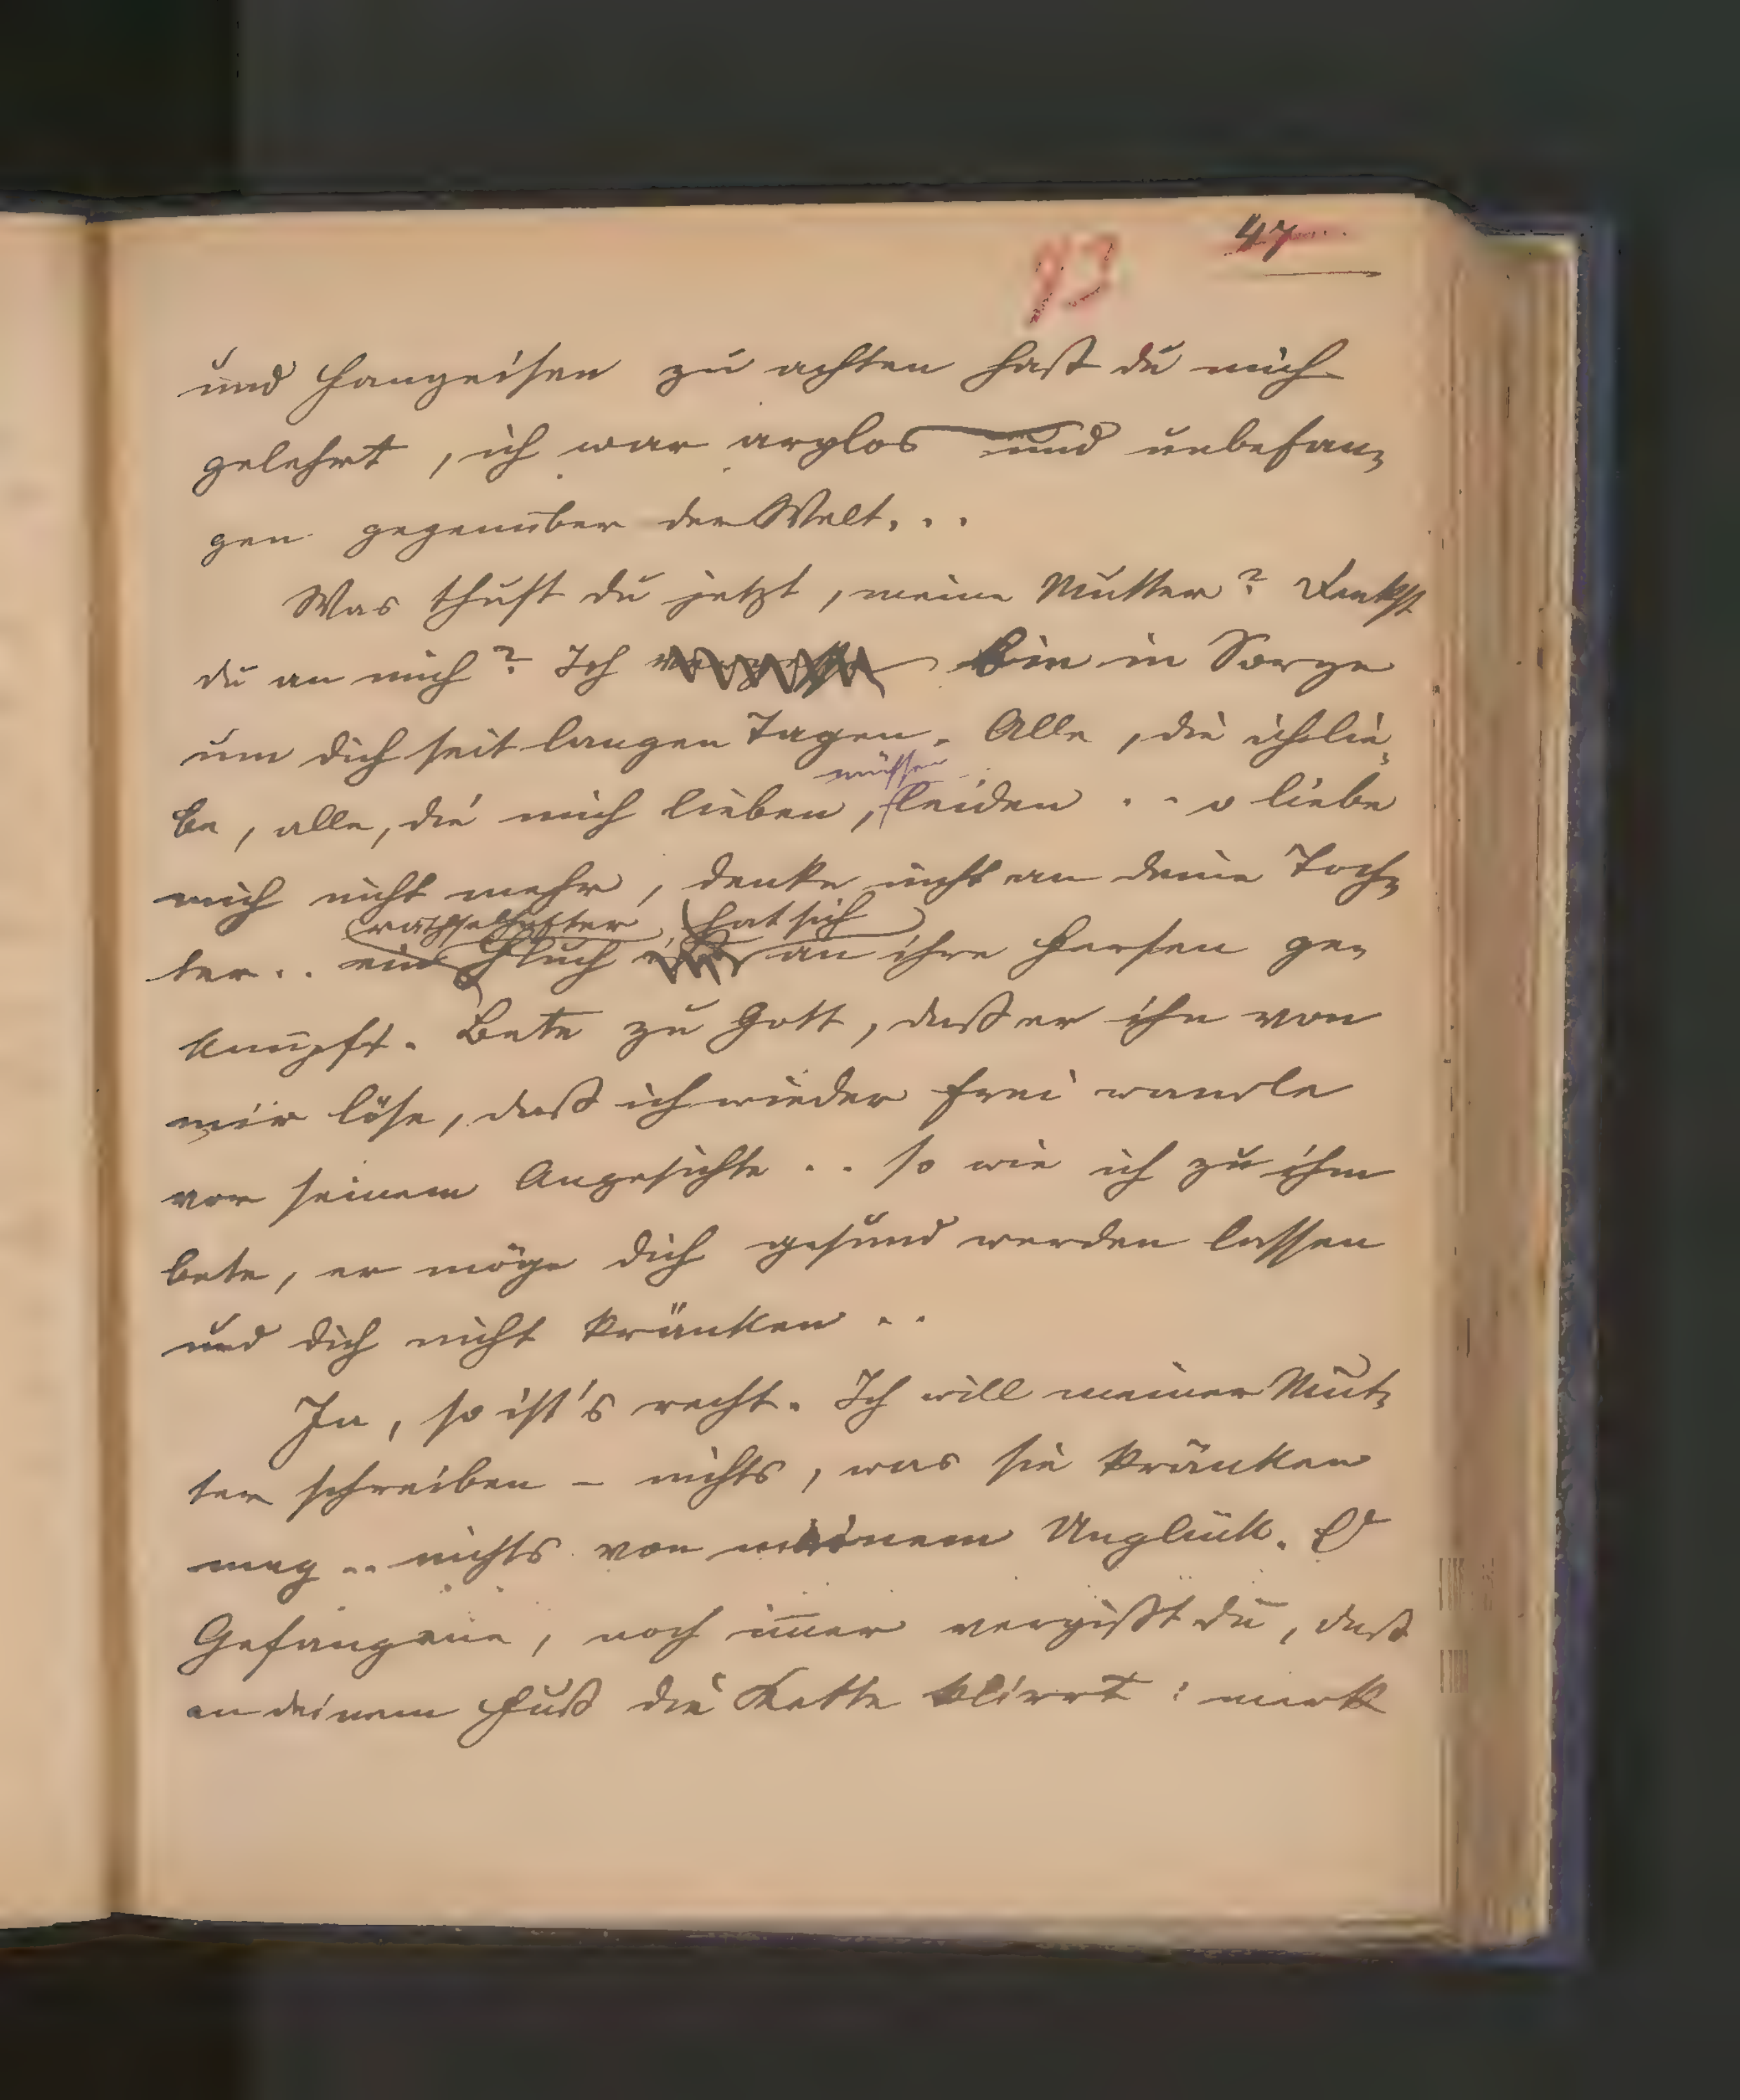 47
93
und Fangeisen zu achten hast du mich
gelehrt, ich war arglos und unbefan-
gen gegenüber der Welt...
Was thust du jetzt, meine Mutter? Denkst
du an mich? Ich bin in Sorge
um dich seit langen Tagen. Alle, die ich lie-
müssen
be, alle, die mich lieben, leiden .. o liebe
mich nicht mehr, denke nicht an deine Toch-
räthselhafter hat sich
ter.. ein Fluch an ihre Fersen ge-
knüpft. Bete zu Gott, daß er ihn von
mir löse, daß ich wieder frei wandle
vor seinem Angesichte .. so wie ich zu ihm
bete, er möge dich gesund werden lassen
und dich nicht kränken ..
Ja, so ist's recht. Ich will meiner Mut-
ter schreiben – nichts, was sie kränken
mag .. nichts von meinem Unglück. O
Gefangene, noch im̅er vergißt du, daß
an deinem Fuß die Kette klirrt: merk